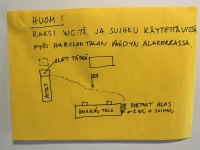 HUOM!
KAKSI WC:TÄ JA SUIHKU KÄYTETTÄVISSÄ
MYÖS HAIKOLAN TALON PÄÄDYN ALAKERRASSA
OLET TÄSSÄ
AITAT
PORTAAT ALAS
HAIKOLAN TALO
2 WC + SUIHKU